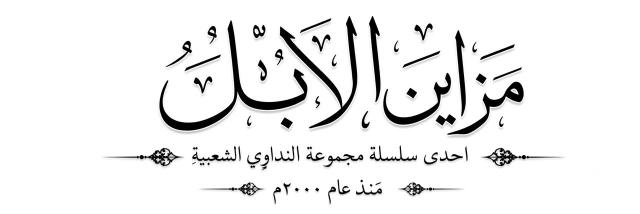 مَزاين الابُلُ
احدى سلسلة مجموعة النداوي الشعبيةِ
مَنذ عام ٢٠٠٠م